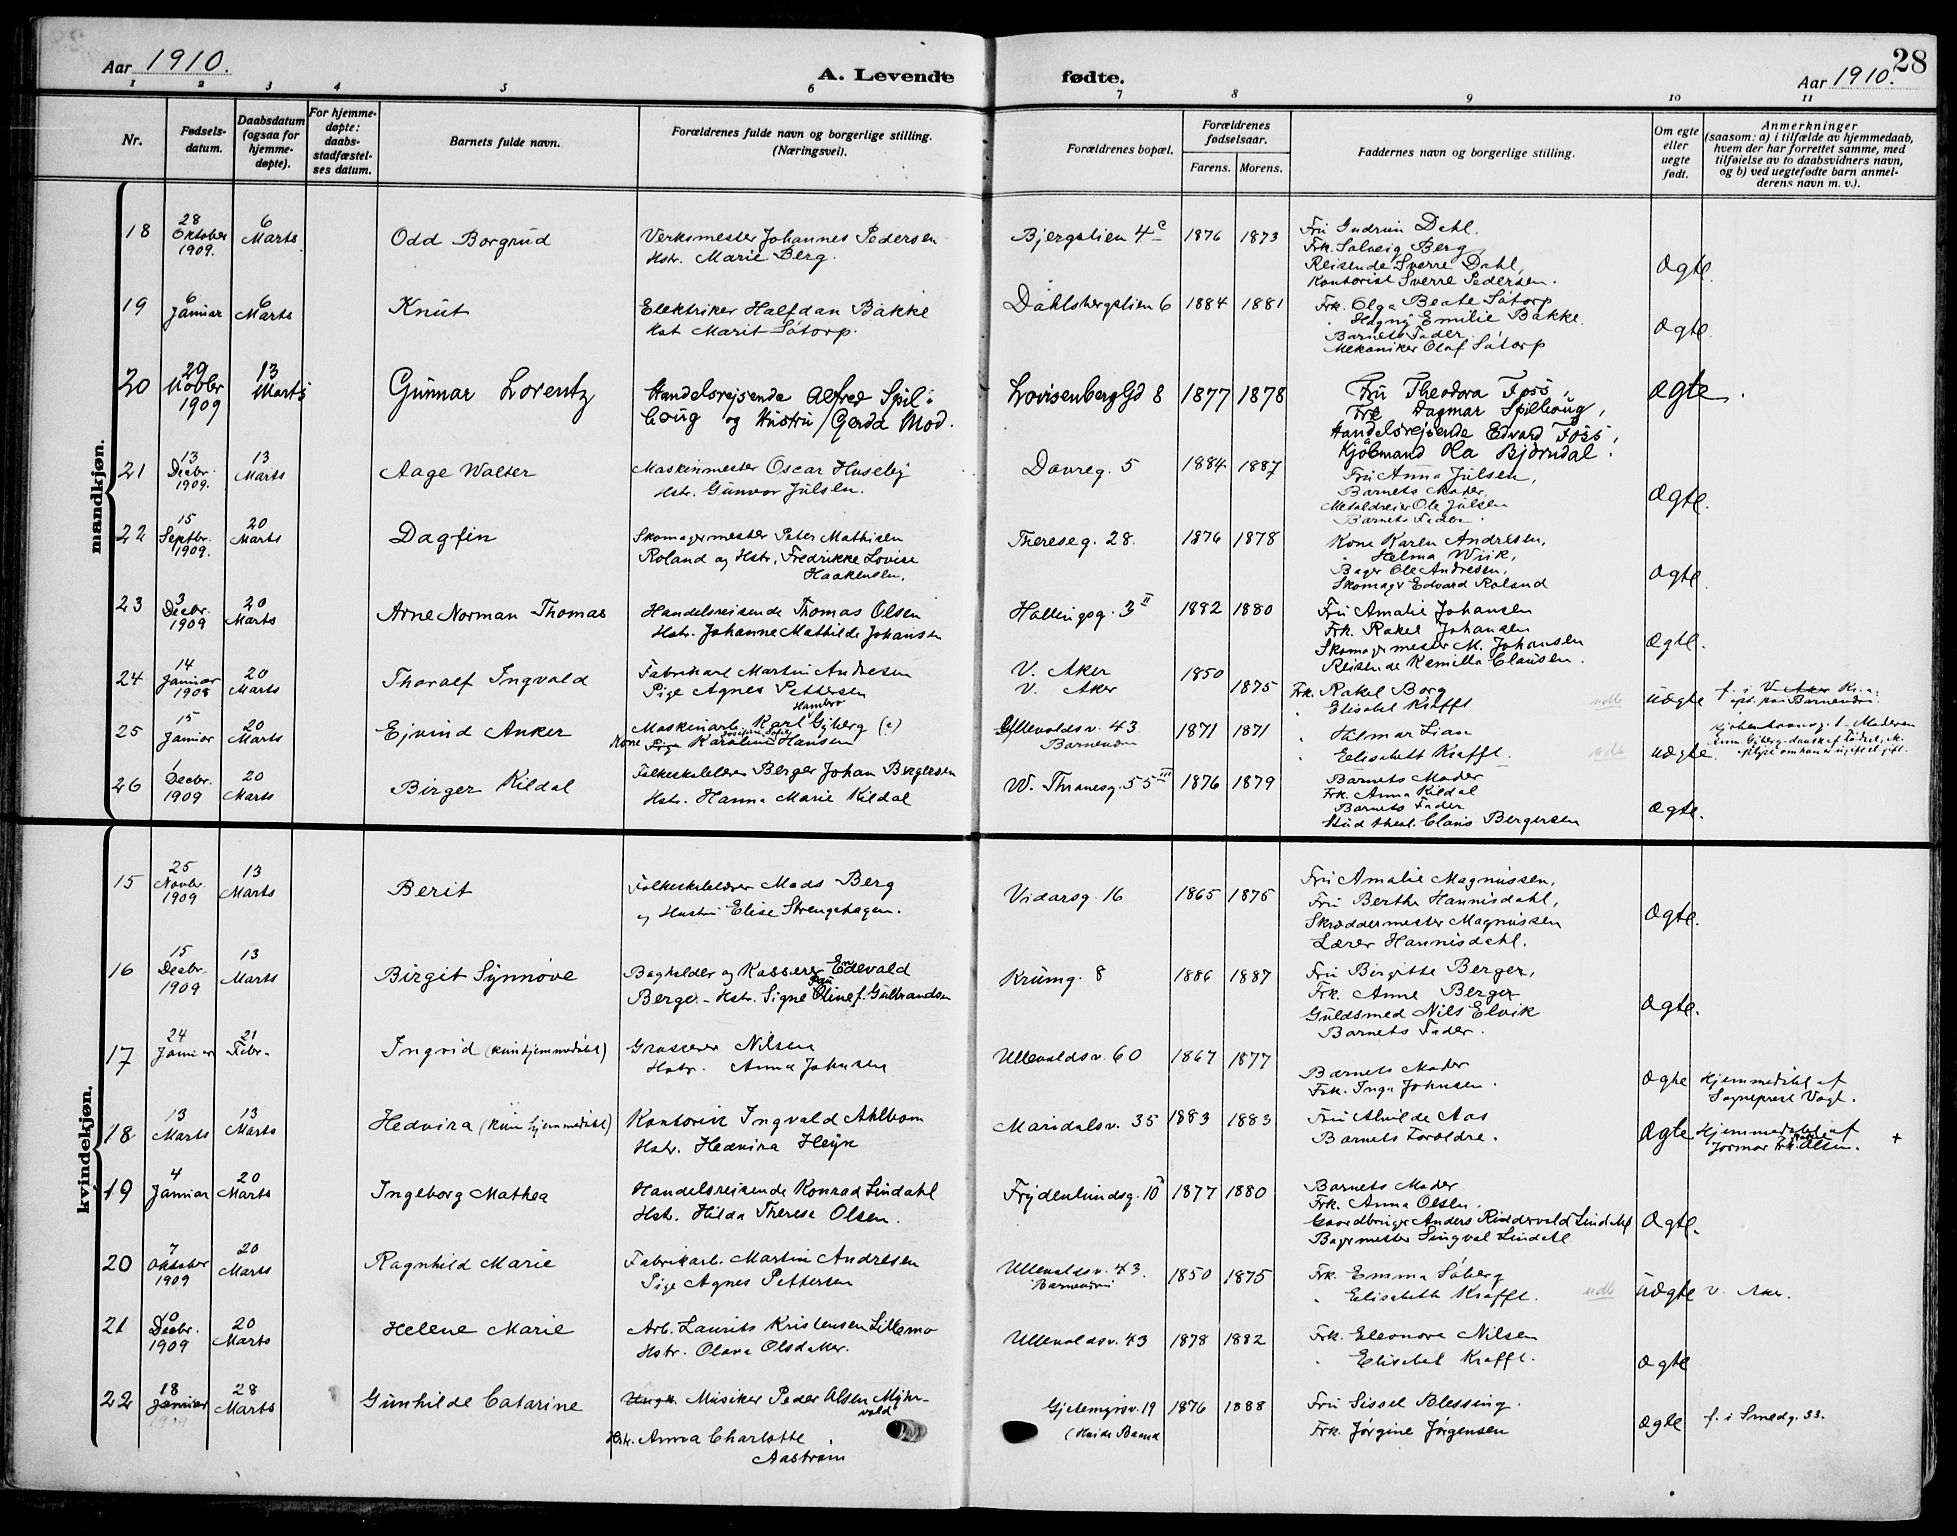 Aar 1910.
A. Levende fødte.
Aar 1910.
28
1 2 3 4 5 6 7 8 9 10 11
Nr.
Fødsels-
datum.
Daabsdatum
(ogsaa for
hjemme-
døpte).
For hjemme-
døpte:
daabs-
stadfæstel-
ses datum.
Barnets fulde navn.
Forældrenes fulde navn og borgerlige stilling.
(Næringsvei).
Forældrenes bopæl.
Forældrenes
fødselsaar.
Farens. Morens.
Faddernes navn og borgerlige stilling.
Om egte
eller
uegte
født.
Anmerkninger
(saasom: a) i tilfælde av hjemmedaab,
hvem der har forrettet samme, med
tilføielse av to daabsvidners navn,
og b) ved uegtefødte barn anmel-
derens navn m. v.).
mandkjøn.
18
28
Oktober
1909.
6
Marts
Odd Borgrud
Verksmester Johannes Pedersen
Hstr. Marie Berg.
Bjergstien 4c
1876 1873
Fru Gudrun Dahl.
Frk. Solveig Berg
Reisende Sverre Dahl,
Kontorist Sverre Pedersen.
Ægte.
19
6
Januar
6
Marts
Knut
Elektriker Halfdan Bakke
Hst Marit Såtorp.
Dahlsbergstien 6
1884 1881
Frk. Olga Beate Såtorp
" Hagny Emilie Bakke.
Barnets Fader
Mekaniker Olaf Såtorp
Ægte.
20
29
Novbr
1909
13
Marts
Gunnar Lorentz
Handelsrejsende Alfred Spil-
loug og Hustru Gerda Mod.
Lovisenberggd 8
1877 1878
Fru Theodora Foss,
Frk Dagmar Spilloug,
Handelsrejsende Edvard Foss,
Kjöbmand Ola Bjørndal.
Ægte.
21
13
Decbr.
1909.
13
Marts
Aage Walter
Maskinmester Oscar Huseby
Hstr. Gunvor Julsen.
Dovreg. 5
1884 1887
Fru Anna Julsen,
Barnets Moder,
Metaldreier Ole Julsen
Barnets Fader.
Ægte.
22
15
Septbr.
1909.
20
Marts
Dagfin
Skomagermester Peter Mathisen
Roland og Hstr. Fredrikke Lovise
Haakensen.
Thereseg. 28.
1876 1878
Kone Karen Andresen,
" Helma Wiik,
Bager Ole Andresen,
Skomager Edvard Roland
Ægte.
23
3
Decbr.
1909
20
Marts
Arne Norman Thomas
Handelsreisende Thomas Olsen
Hstr. Johanne Mathilde Johansen
Hallingsg. 3 II
1882 1880
Fru Amalie Johansen
Frk. Rakel Johansen
Skomagermester M. Johansen
Reisende Kemilla Clausen.
Ægte.
24
14
Januar
1908
20
Marts
Thoralf Ingvald
Fabrikarb Martin Andresen
Pige Agnes Pettersen
V. Aker
V. Aker
1850 1875
Frk. Rakel Borg
" Elisabet Krafft
udb
Uægte
f. i V. Aker Kr.a:
opt. paa Barnevdn.
25
15
Januar
20
Marts
Ejvind Anker
Hambro
Maskinarb. Karl Gjberg (e)
Josefine Sofie
Kone Pige Karoline Hansen
Ullevoldsv. 43
Barnevdn
1871 1871
" Hilmar Lian
" Elisabeth Krafft.
udb
Uægte.
26
1
Decbr.
1909
20
Marts
Birger Kildal
Folkeskolelærer Berger Johan Bergersen
Hstr. Hanna Marie Kildal
W. Thranesg. 55 III
1876 1879
Barnets Moder
Frk. Anna Kildal
Barnets Fader
Stud theol. Claus Bergersen
Ægte.
kvindekjøn.
15
25
Novbr.
1909
13
Marts
Berit
Folkeskolelærer Mads Berg
og Hustru Elise Strengehagen.
Vidarsg. 16
1865 1875
Fru Amalie Magnussen,
Fru Berthe Hannisdahl,
Skræddermester Magnussen
Lærer Hannisdahl.
Ægte.
16
15
Decbr.
1909
13
Marts
Birgit Synnøve
Bogholder og Kasserer Edevald
Berger - Hstr. Signe Oline f. Gulbrandsen
Krumg. 8
1886 1887
Fru Birgitte Berger,
Frk. Anne Berger
Guldsmed Nils Elvik
Barnets Fader.
Ægte.
17
24
Januar
21
Febr.
Ingrid (kun hjemmedöbt)
Grosserer Nilsen
Hstr. Anna Johnsen
Ullevoldsv. 60
1867 1877
Barnets Moder
Frk. Inga Johnsen.
Ægte
Hjemmedöbt af
Sogneprest Vogt.
18
13
Marts
13
Marts
Hedvira (kun hjemmedöbt)
Kontorist Ingvald Ahlbom
Hstr. Hedvira Heyn
Maridalsv. 35
1883 1883
Fru Alvilde Aas
Barnets Foröldre.
Ægte.
Hjemmedöbt af
Jormor Frk. Olsen.
+
19
4
Januar
20
Marts
Ingeborg Mathea
Handelsreisende Konrad Lindahl
Hstr. Hilda Therese Olsen.
Frydenlundsg. 10 I
1877 1880
Barnets Moder
Frk. Anna Olsen
Gaardbruger Anders Riddervold Lindahl
Bagermester Lingval Lindahl
Ægte.
20
7
Oktober
1909
20
Marts
Ragnhild Marie
Fabrikarb. Martin Andresen
Pige Agnes Pettersen
Ullevoldsv. 43.
Barnevdn
1850 1875
Frk. Emma Söberg
" Elisabeth Krafft.
udb
Uægte
V. Aker.
21
10
Decbr.
1909
20
Marts
Helene Marie
Arb. Laurits Kristensen Lillemo
Hstr. Olava Olsdatter.
Ullevoldsv. 43
1878 1882
Frk. Eleonora Nilsen
" Elisabet Krafft.
Ægte
22
18
Januar
1909
28
Marts
Gunhilde Catarine
Musiker Peder Olsen Myhr-
vold
Hstr. Anna Charlotte
Aastrøm
Gjetemyrsv. 19
1876 1888
Fru Sissel Blessing.
Frk. Jørgine Jørgensen
Ægte
f. i Smedg. 33.